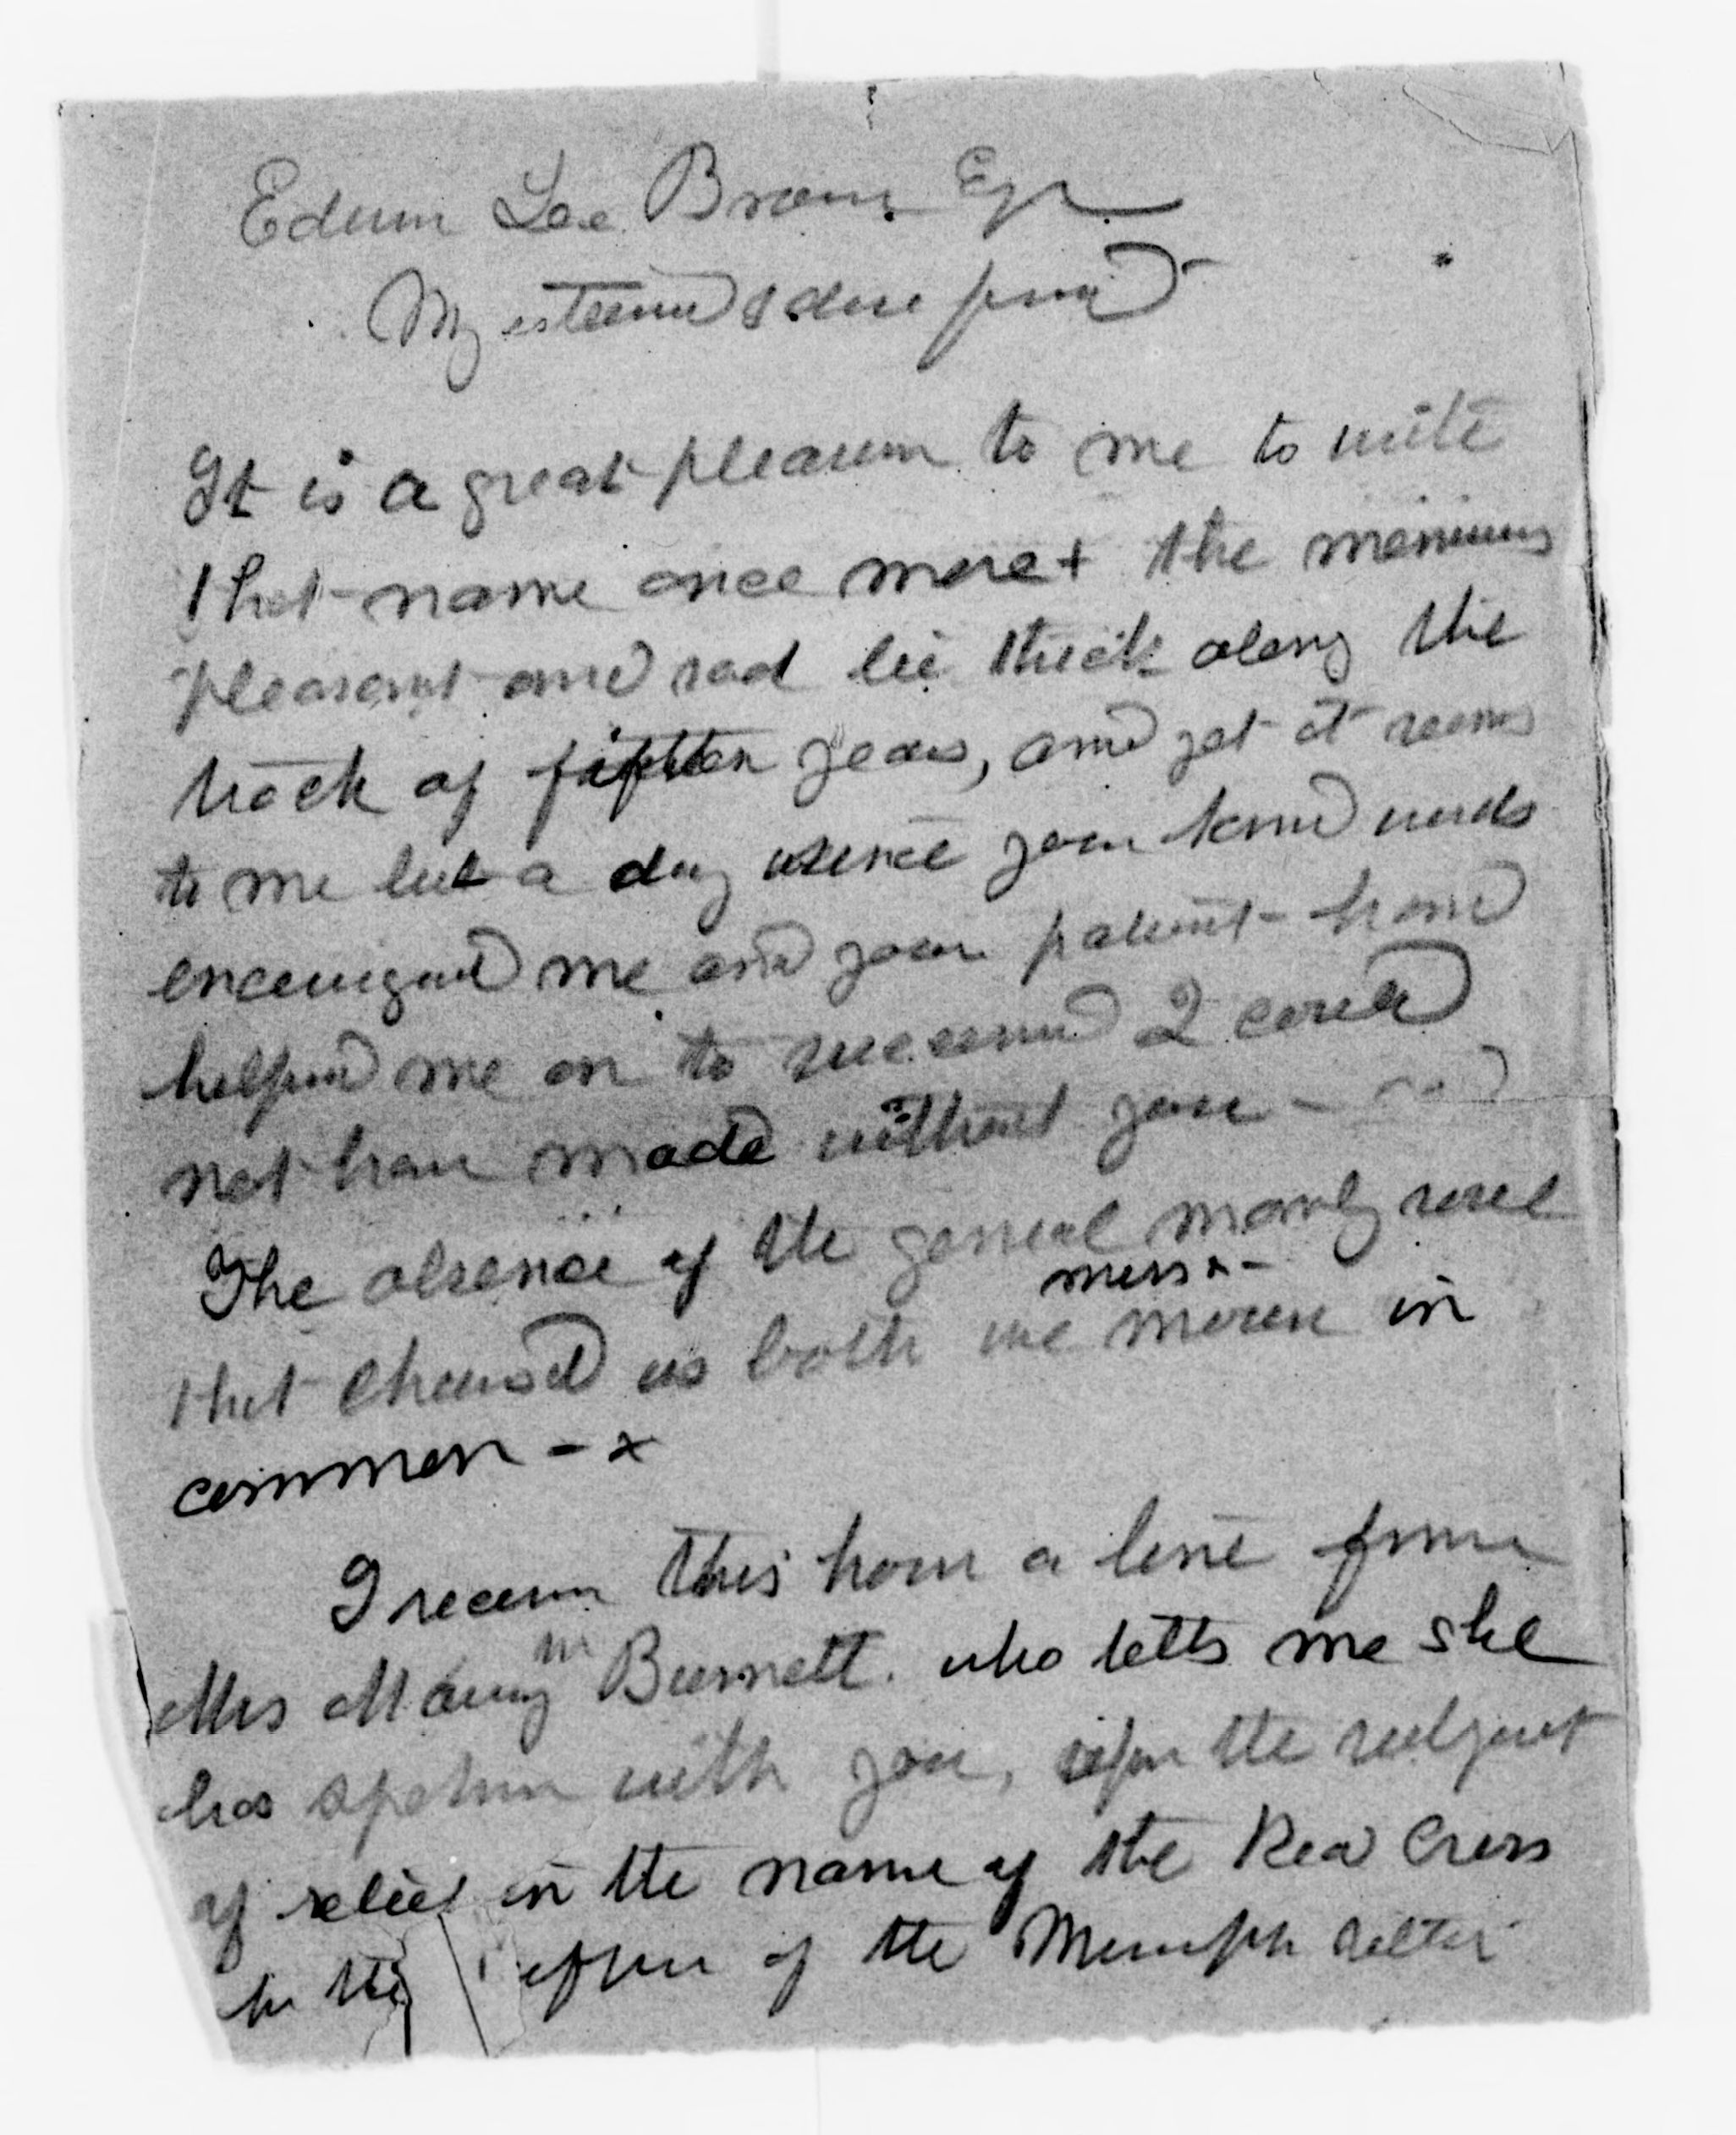 Edwin Lee Brown Esqr
My esteemed & dear friend
It is a great pleasure to me to write
that name once more + the memories
pleasant and sad lie thick along the
track of fifteen years, and yet it seems
to me but a day since your kind words
encouraged me and your patient hand
helped me on to success I could
not have made without you - and
The absence of the genial manly soul
miss x -
that cheered us both we mourn in
common - x
I receive this hour a line from
Mrs Mary M Burnett. who tells me she
has spoken with you, upon the subject
of relief in the name of the Red Cross
to the of the Memph